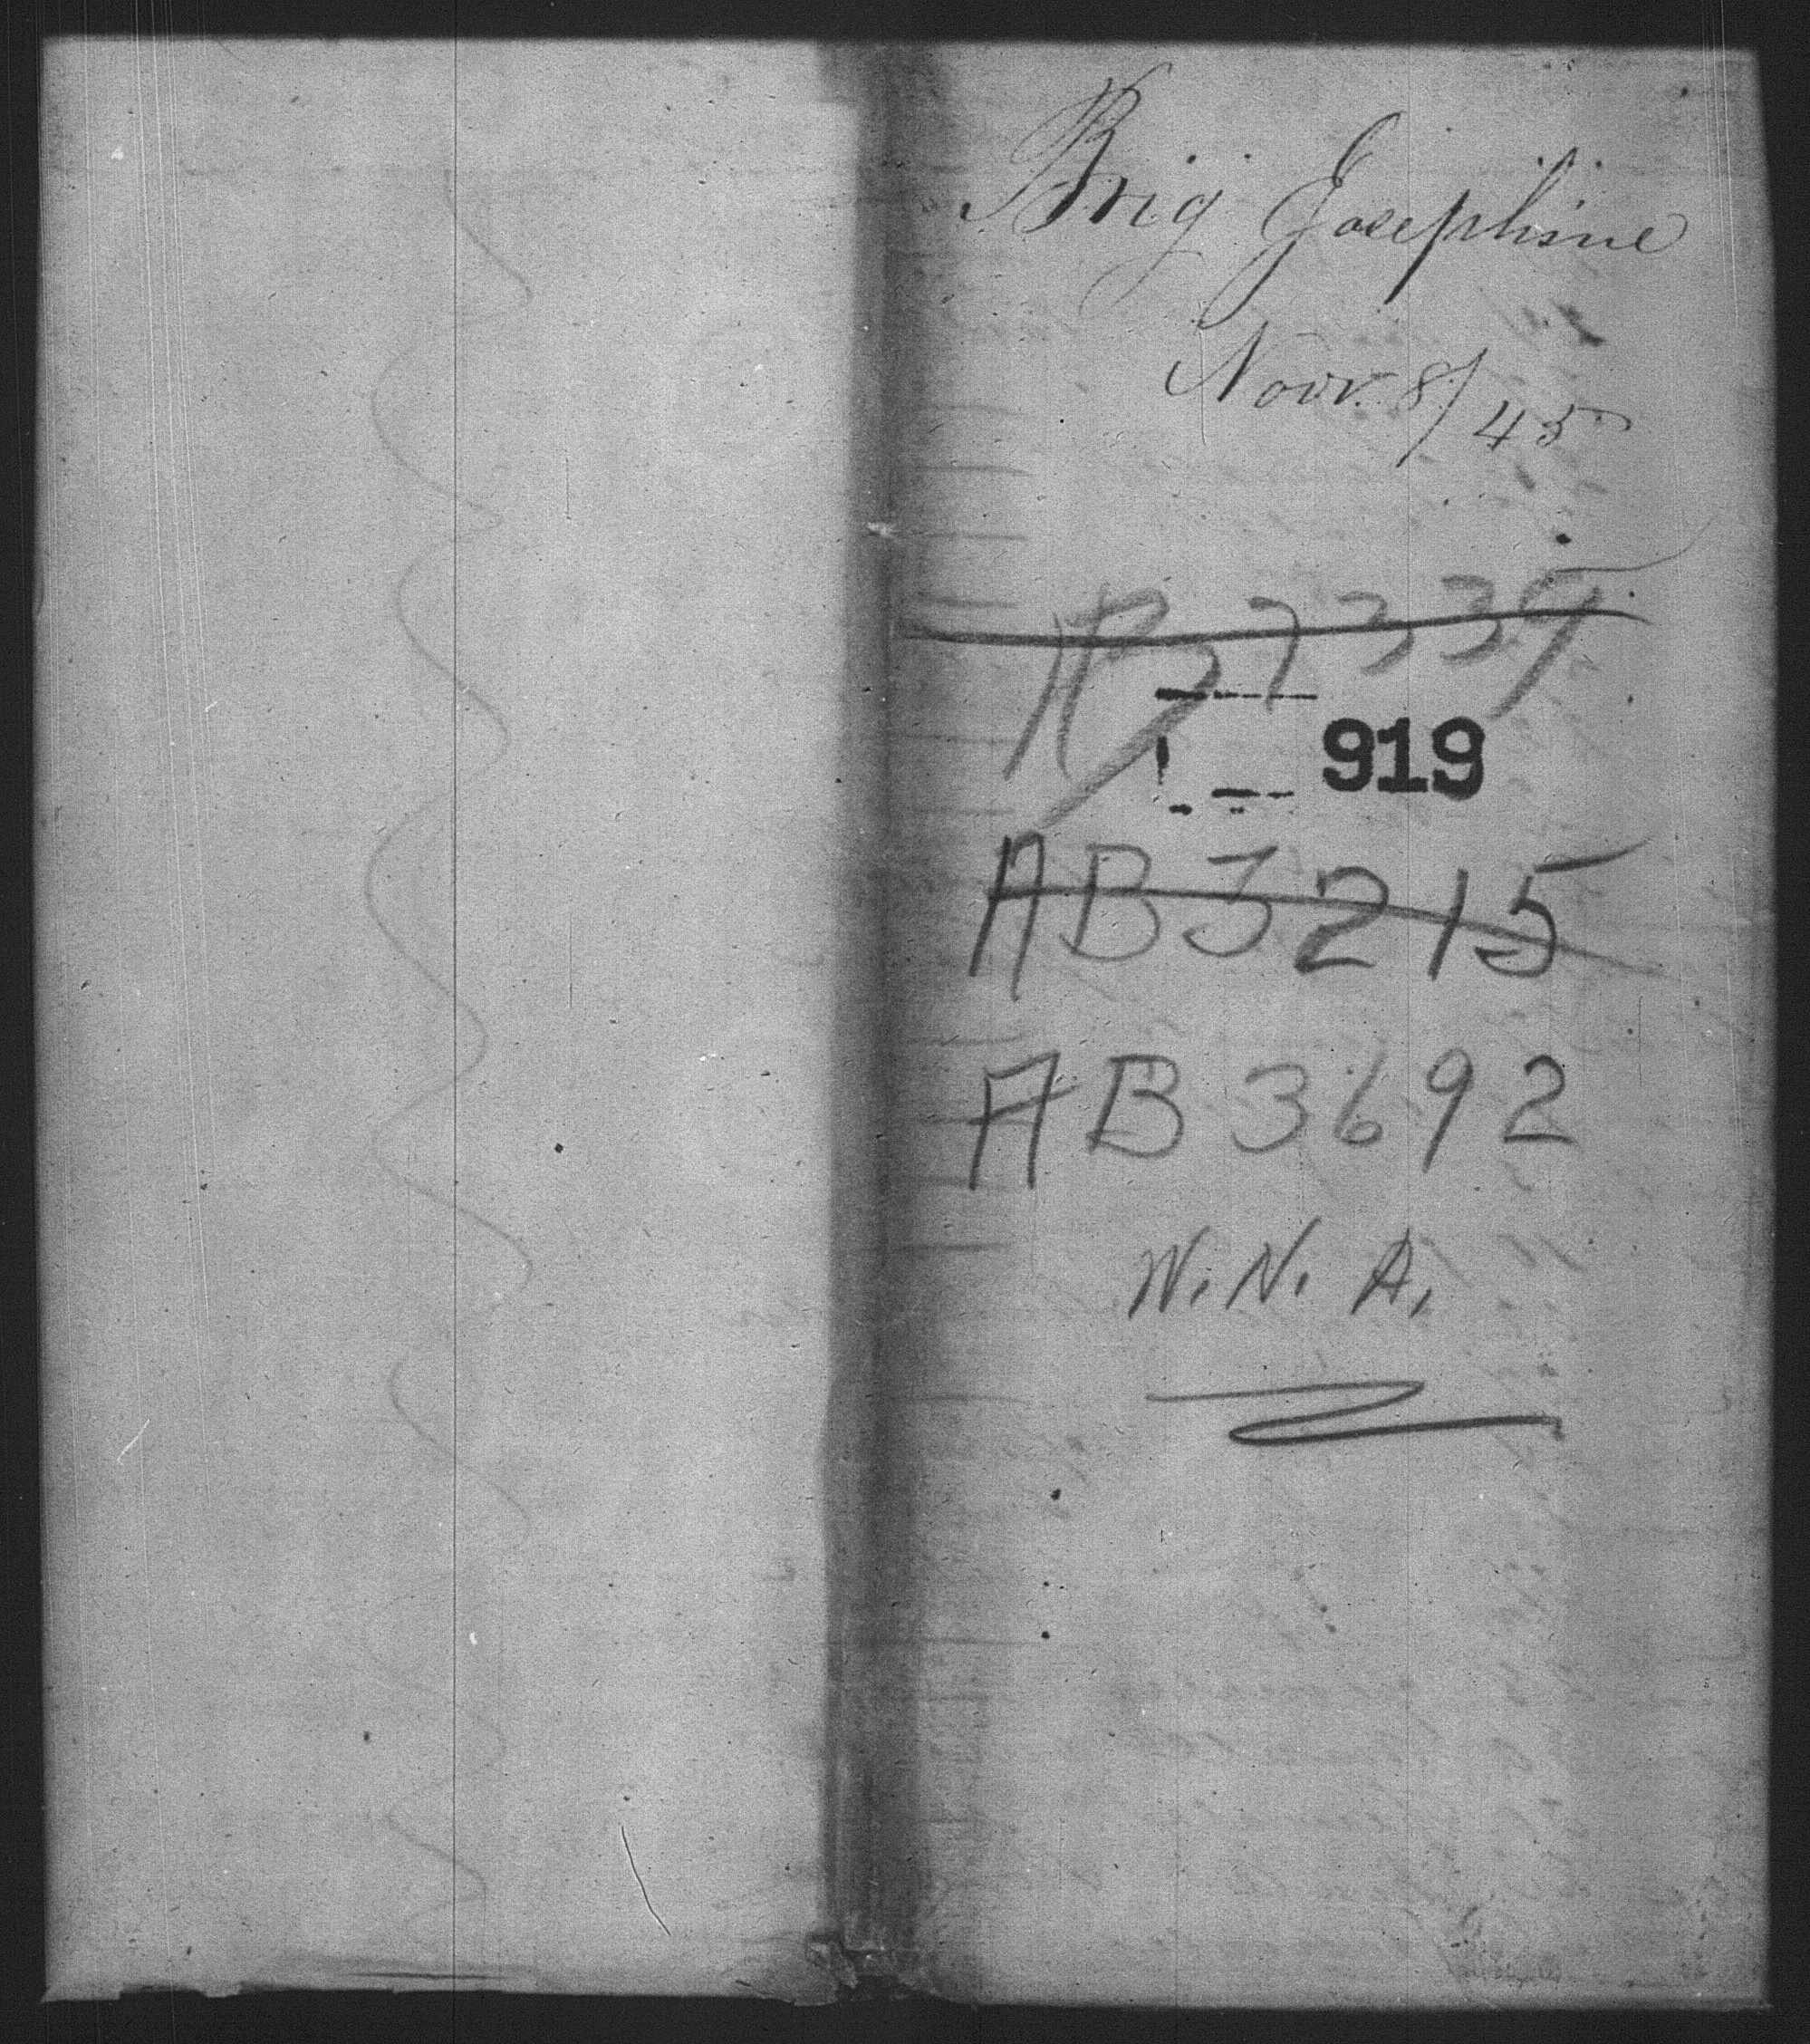 Brig Josephine
Novr. 8/45
AB 7335
919
AB 3215
AB 3692
W. N. A.